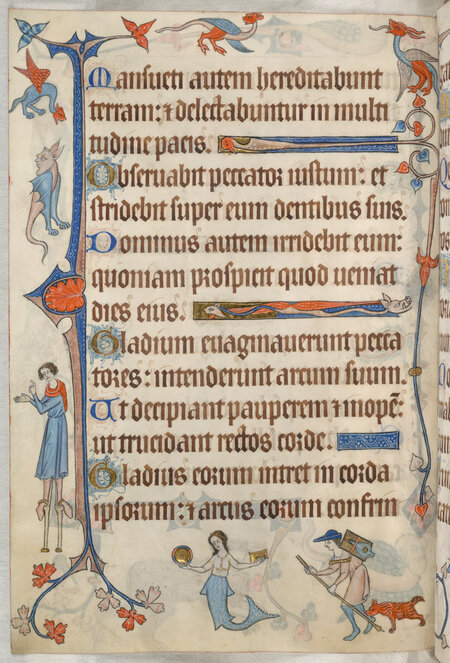 Mansueti autem hereditabunt
terram: ⁊ delectabuntur in multi
tudine pacis.
Obseruabit peccator iustum: et
stridebit super eum dentibus suis.
Dominus autem irridebit eum:
quoniam prospicit quod ueniat
dies eius.
Gladium euaginauerunt pecca
tores: intenderunt arcum suum.
Ut decipiant pauperem ⁊ inopē:
ut trucidant rectos corde.
Gladius eorum intret in corda
ipsorum: ⁊ arcus eorum confrin